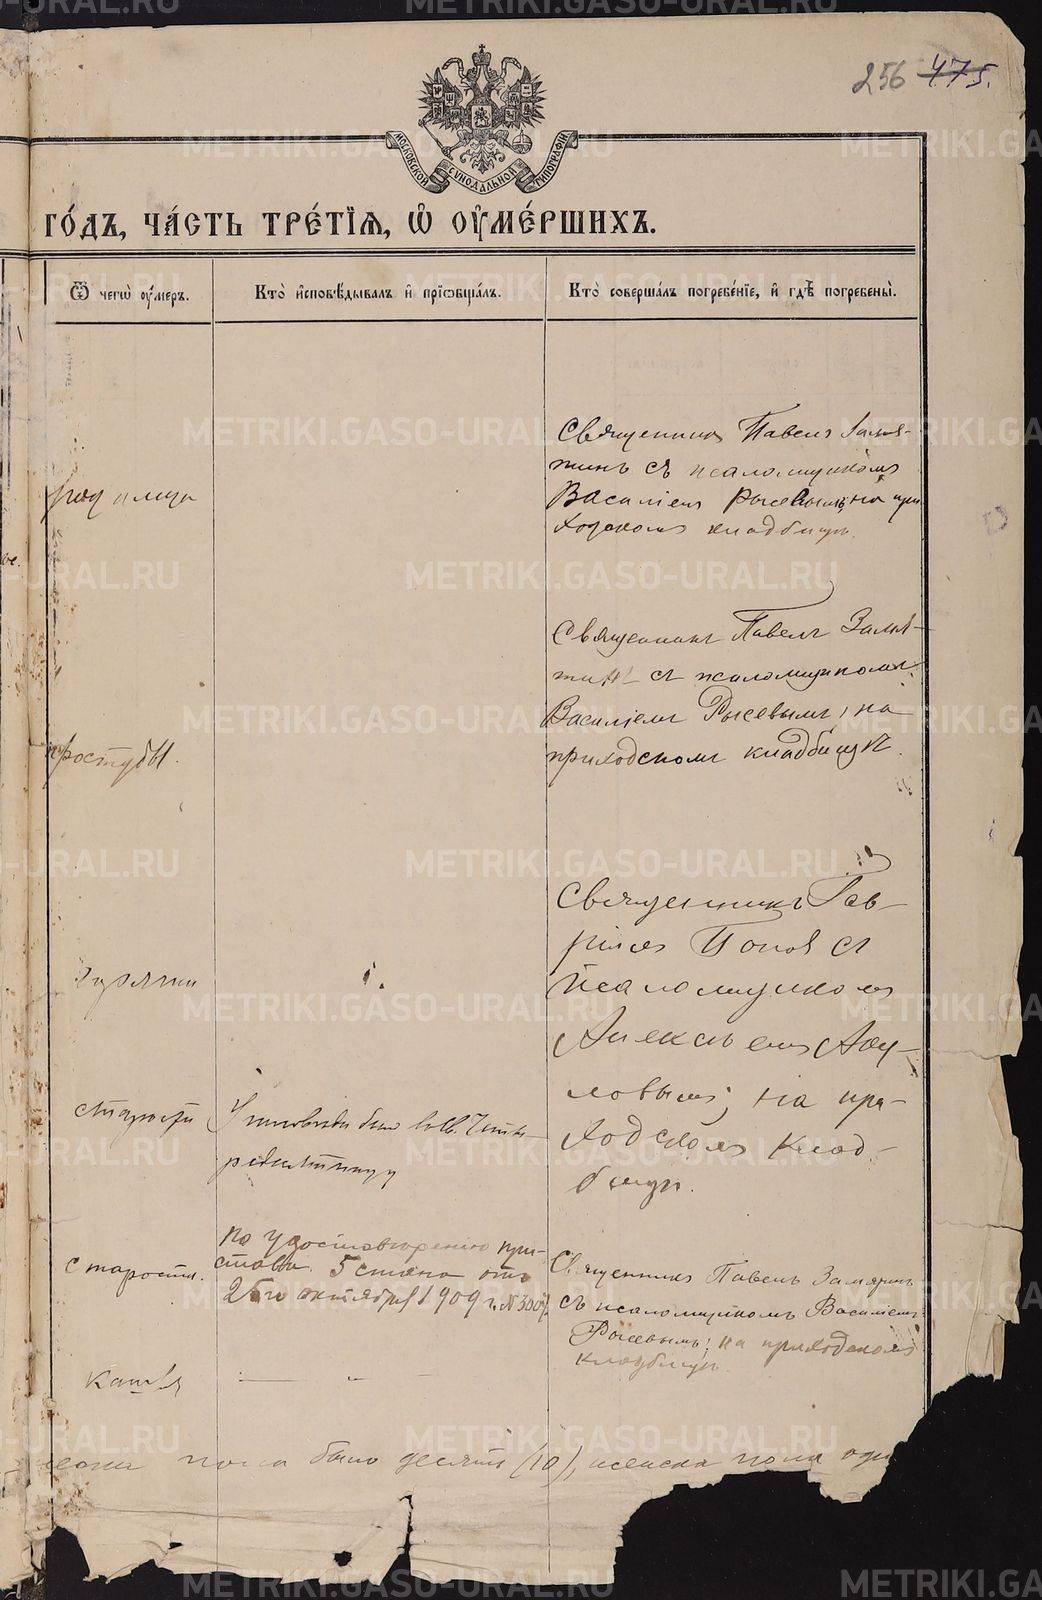 256 475.
МОСКОВСКОЙ СѴНОДАЛЬНОЙ ТИПОГРАФІИ
ГО́ДЪ, ЧА́СТЬ ТРЕ́ТІѦ, Ѡ҆ ОУ҆МЕ́РШИХЪ.
Ѿ чегѡ̀ оу҆́меръ.
Кто̀ и҆сповѣ́дывалъ и҆ прїѡбща́лъ.
Кто̀ соверша́лъ погребе́нїе, и҆ гдѣ̀ погребены̀.
Священникъ Павелъ Замя-
тинъ съ псаломщикомъ
Василіем Рысевымъ, на при
ходском кладбищѣ.
Священникъ Павелъ Замя-
тинъ съ псаломщикомъ
Василіемъ Рысевымъ, на
приходскомъ кладбищѣ.
простуды.
Священникъ Гав-
ріилъ Поповъ съ
псаломщикомъ
Алексѣемъ
на при-
ходскомъ клад-
бищѣ.
горячки
старости
старости.
По удостовѣренію при-
става 5 стана отъ
25го октября 1909 г. №
Священникъ Павелъ Замятин
съ псаломщикомъ Василіемъ
Рысевымъ; на приходскомъ
кладбищѣ.
кашля
пола было десять (10), женска пола
METRIKI.GASO-URAL.RU